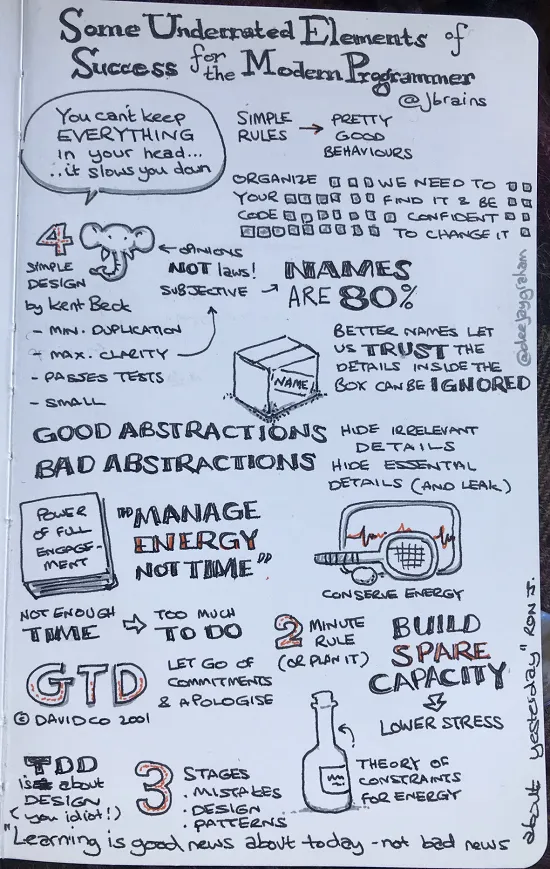 Some Underrated Elements of
Success for the Modern Programmer
@jbrains
You can't keep
EVERYTHING
in your head...
..it slows you down
SIMPLE
RULES → PRETTY
GOOD
BEHAVIOURS
ORGANIZE WE NEED TO
YOUR FIND IT & BE
CODE CONFIDENT
TO CHANGE IT
4
SIMPLE
DESIGN
by Kent Beck
- MIN. DUPLICATION
- MAX. CLARITY
- PASSES TESTS
- SMALL
← OPINIONS
NOT laws!
SUBJECTIVE →
NAMES
ARE 80%
@deejaygraham
NAME
BETTER NAMES LET
US TRUST THE
DETAILS INSIDE THE
BOX CAN BE IGNORED
GOOD ABSTRACTIONS HIDE IRRELEVANT
DETAILS
BAD ABSTRACTIONS HIDE ESSENTIAL
DETAILS (AND LEAK)
POWER
OF FULL
ENGAGE-
MENT
"MANAGE
ENERGY
NOT TIME"
CONSERVE ENERGY
NOT ENOUGH
TIME ⇨ TOO MUCH
TO DO
2 MINUTE
RULE
(OR PLAN IT)
BUILD
SPARE
CAPACITY
LOWER STRESS
GTD
© DAVIDCO 2001
LET GO OF
COMMITMENTS
& APOLOGISE
THEORY OF
CONSTRAINTS
FOR ENERGY
TDD
is about
DESIGN
(you idiot!)
3 STAGES
. MISTAKES
. DESIGN
. PATTERNS
"Learning is good news about today - not bad news
about yesterday" RON J.